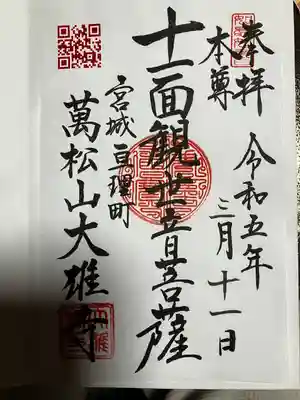 奉拝 令和五年
三月十一日
本尊
十一面観世音菩薩
宮城 亘理町
萬松山大雄寺